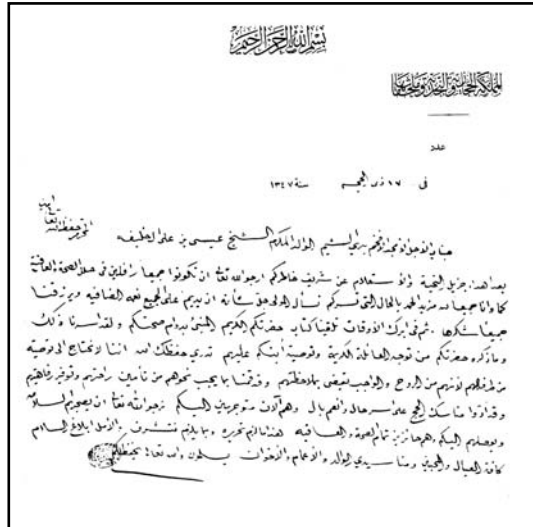 بسم الله الرحمن الرحيم
المملكة الحجازية والنجدية وملحقاتها
عدد
في ١٧ ذي الحجة سنة ١٣٤٧
جناب الأجل الأمجد الأفخم الشيم الوالد المكرم الشيخ عيسى بن علي الخليفه المحترم حفظه الله تعالى
بعد اهداء جزيل التحية والاستعلام عن شريف خاطركم ارجو الله تعالى ان تكونوا جميعا رافلين في حلل الصحة والعافية
كما واننا جميعا لله مزيد الحمد بالحال التي تسركم نسأل المولى جل شأنه ان يديم على الجميع نعمه الضافيه ويرزقنا
جميعا شكرها ثم في ابرك الأوقات تلقينا كتاب حضرتكم الكريم المنبئ بدوام صحتكم ولقد اسرنا ذلك
وما ذكره حضرتكم من توجه العائلة الكريمة وتوصية ابنكم عليهم تدري حفظك الله اننا لا نحتاج الى توصية
من طرفهم لأنهم من الروح والواجب يقضي بملاحظتهم وقد قمنا بما يجب نحوهم من تأمين راحتهم وتوفير رفاهيتهم
وقد ادوا مناسك الحج على اسر حال وانعم بال وهم الآن متوجهين اليكم نرجو الله تعالى ان يصحبهم السلامة
ويوصلهم اليكم وهم حائزين تمام الصحة والعافيه هذا ما لزم تحريره وما يلزم نتشرف به والأمل ابلاغ السلام
كافة العيال والمحبين ومنا سيدي الوالد والأعمام والأخوان يسلمون والله تعالى يحفظكم